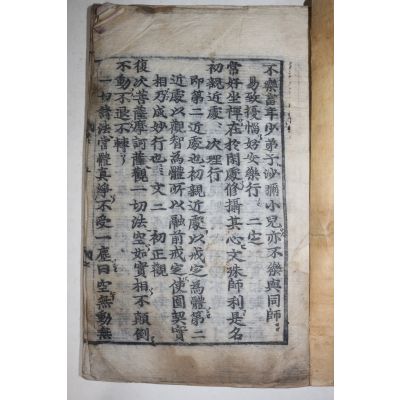 不樂畜年少弟子沙彌小兒亦不樂與同師
易致擾惱好安樂行 二定
常好坐禪在於閑處修攝其心文殊師利是名
初親近處 次理行
即第二近處也初親近處以戒定為體第二
近處以觀智為體所以融前戒定使圓契實
相乃成妙行也 文二 初正觀
復次菩薩摩訶薩觀一切法空如實相不顛倒
不動不退不轉
一切諸法當體真淨不受一塵曰空無動無